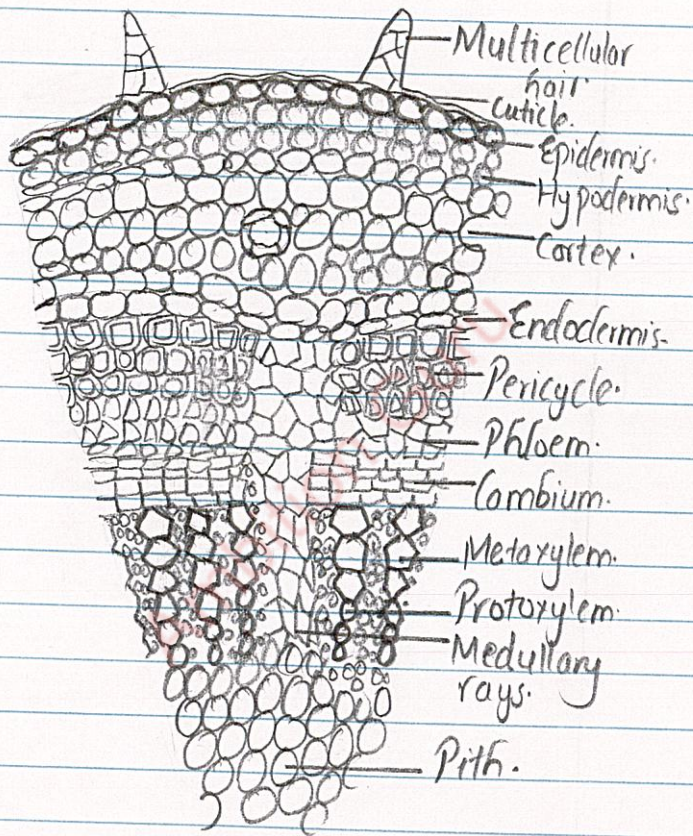 Multicellular
hair.
Cuticle.
Epidermis.
Hypodermis.
Cortex.
Endodermis.
Pericycle.
Phloem.
Combium.
Metoxylem.
Protoxylem.
Medullary
rays.
Pith.